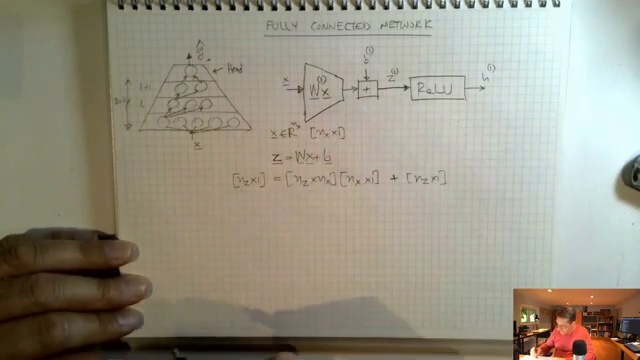 FULLY CONNECTED NETWORK
ŷ
Head
L+1
L
x
x
W x
(1)
+
b
(1)
z
(1)
ReLU
h
(1)
x ∈ R^nx [nx x 1]
z = Wx + b
[nz x 1] = [nz x nx] [nx x 1] + [nz x 1]